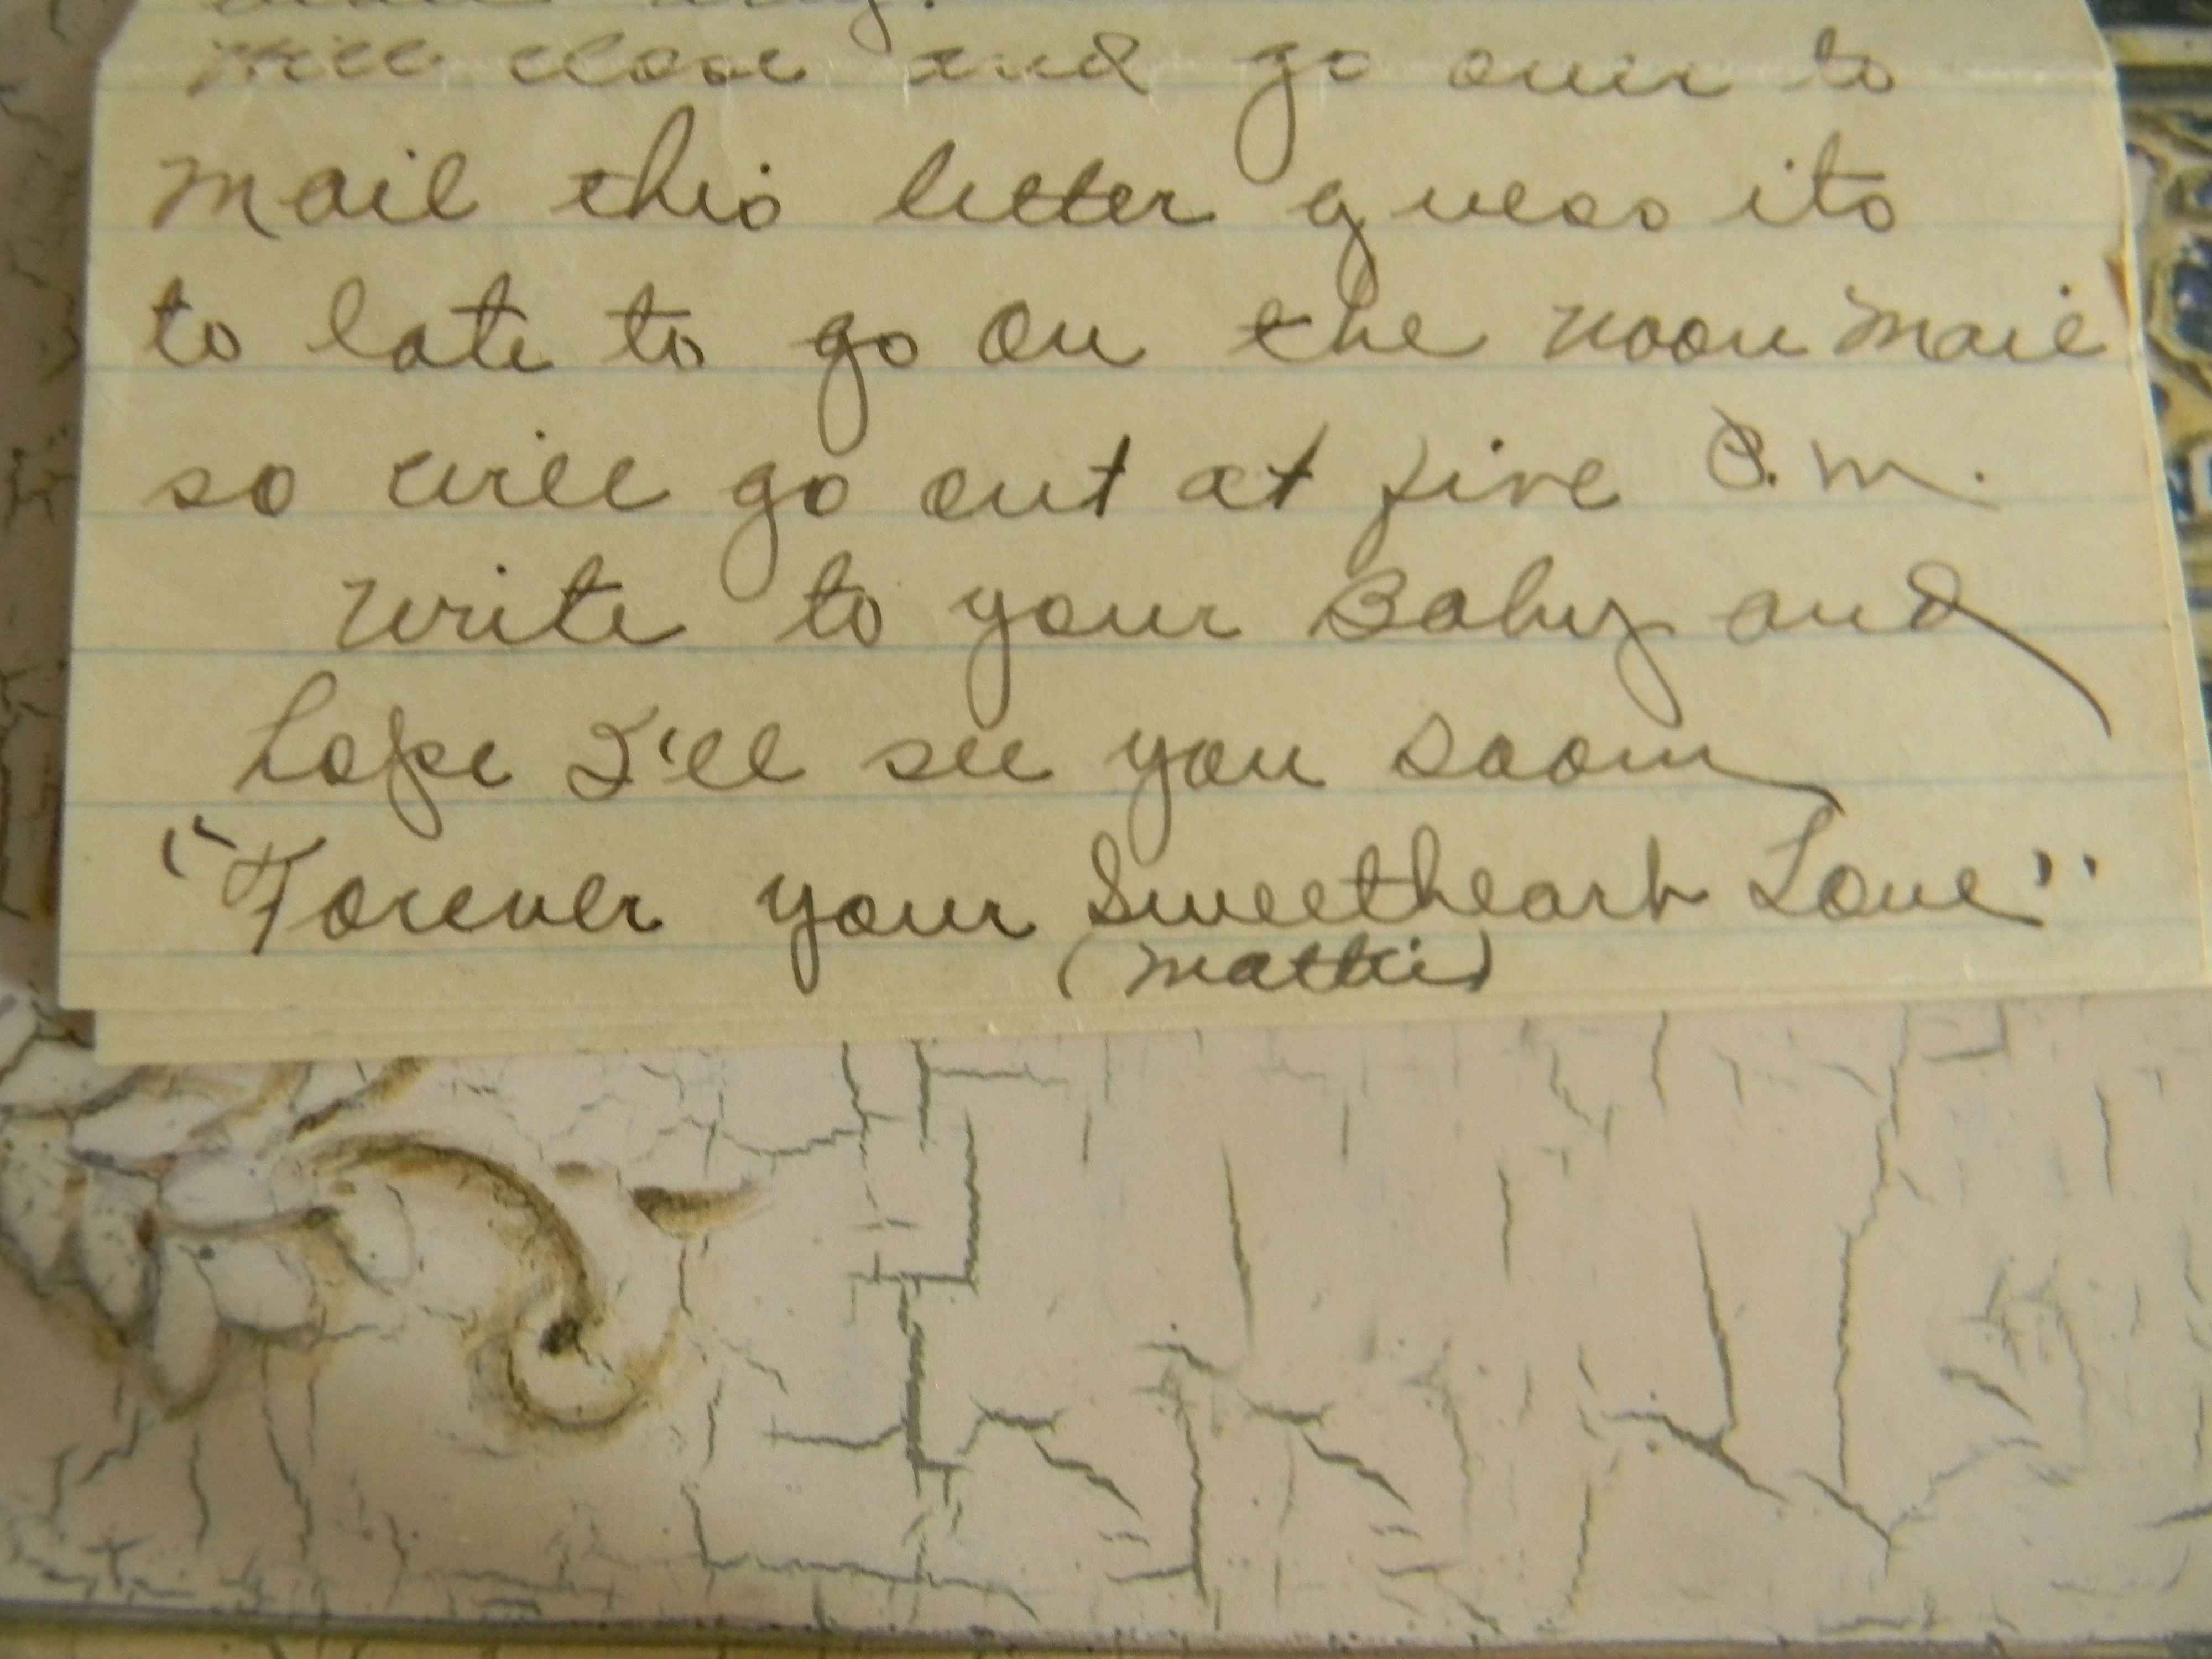 will close and go over to
mail this letter guess its
to late to go on the noon mail
so will go out at five P.M.
write to your Baby and
hope I'll see you soon
"Forever your Sweetheart Love"
(Mattie)